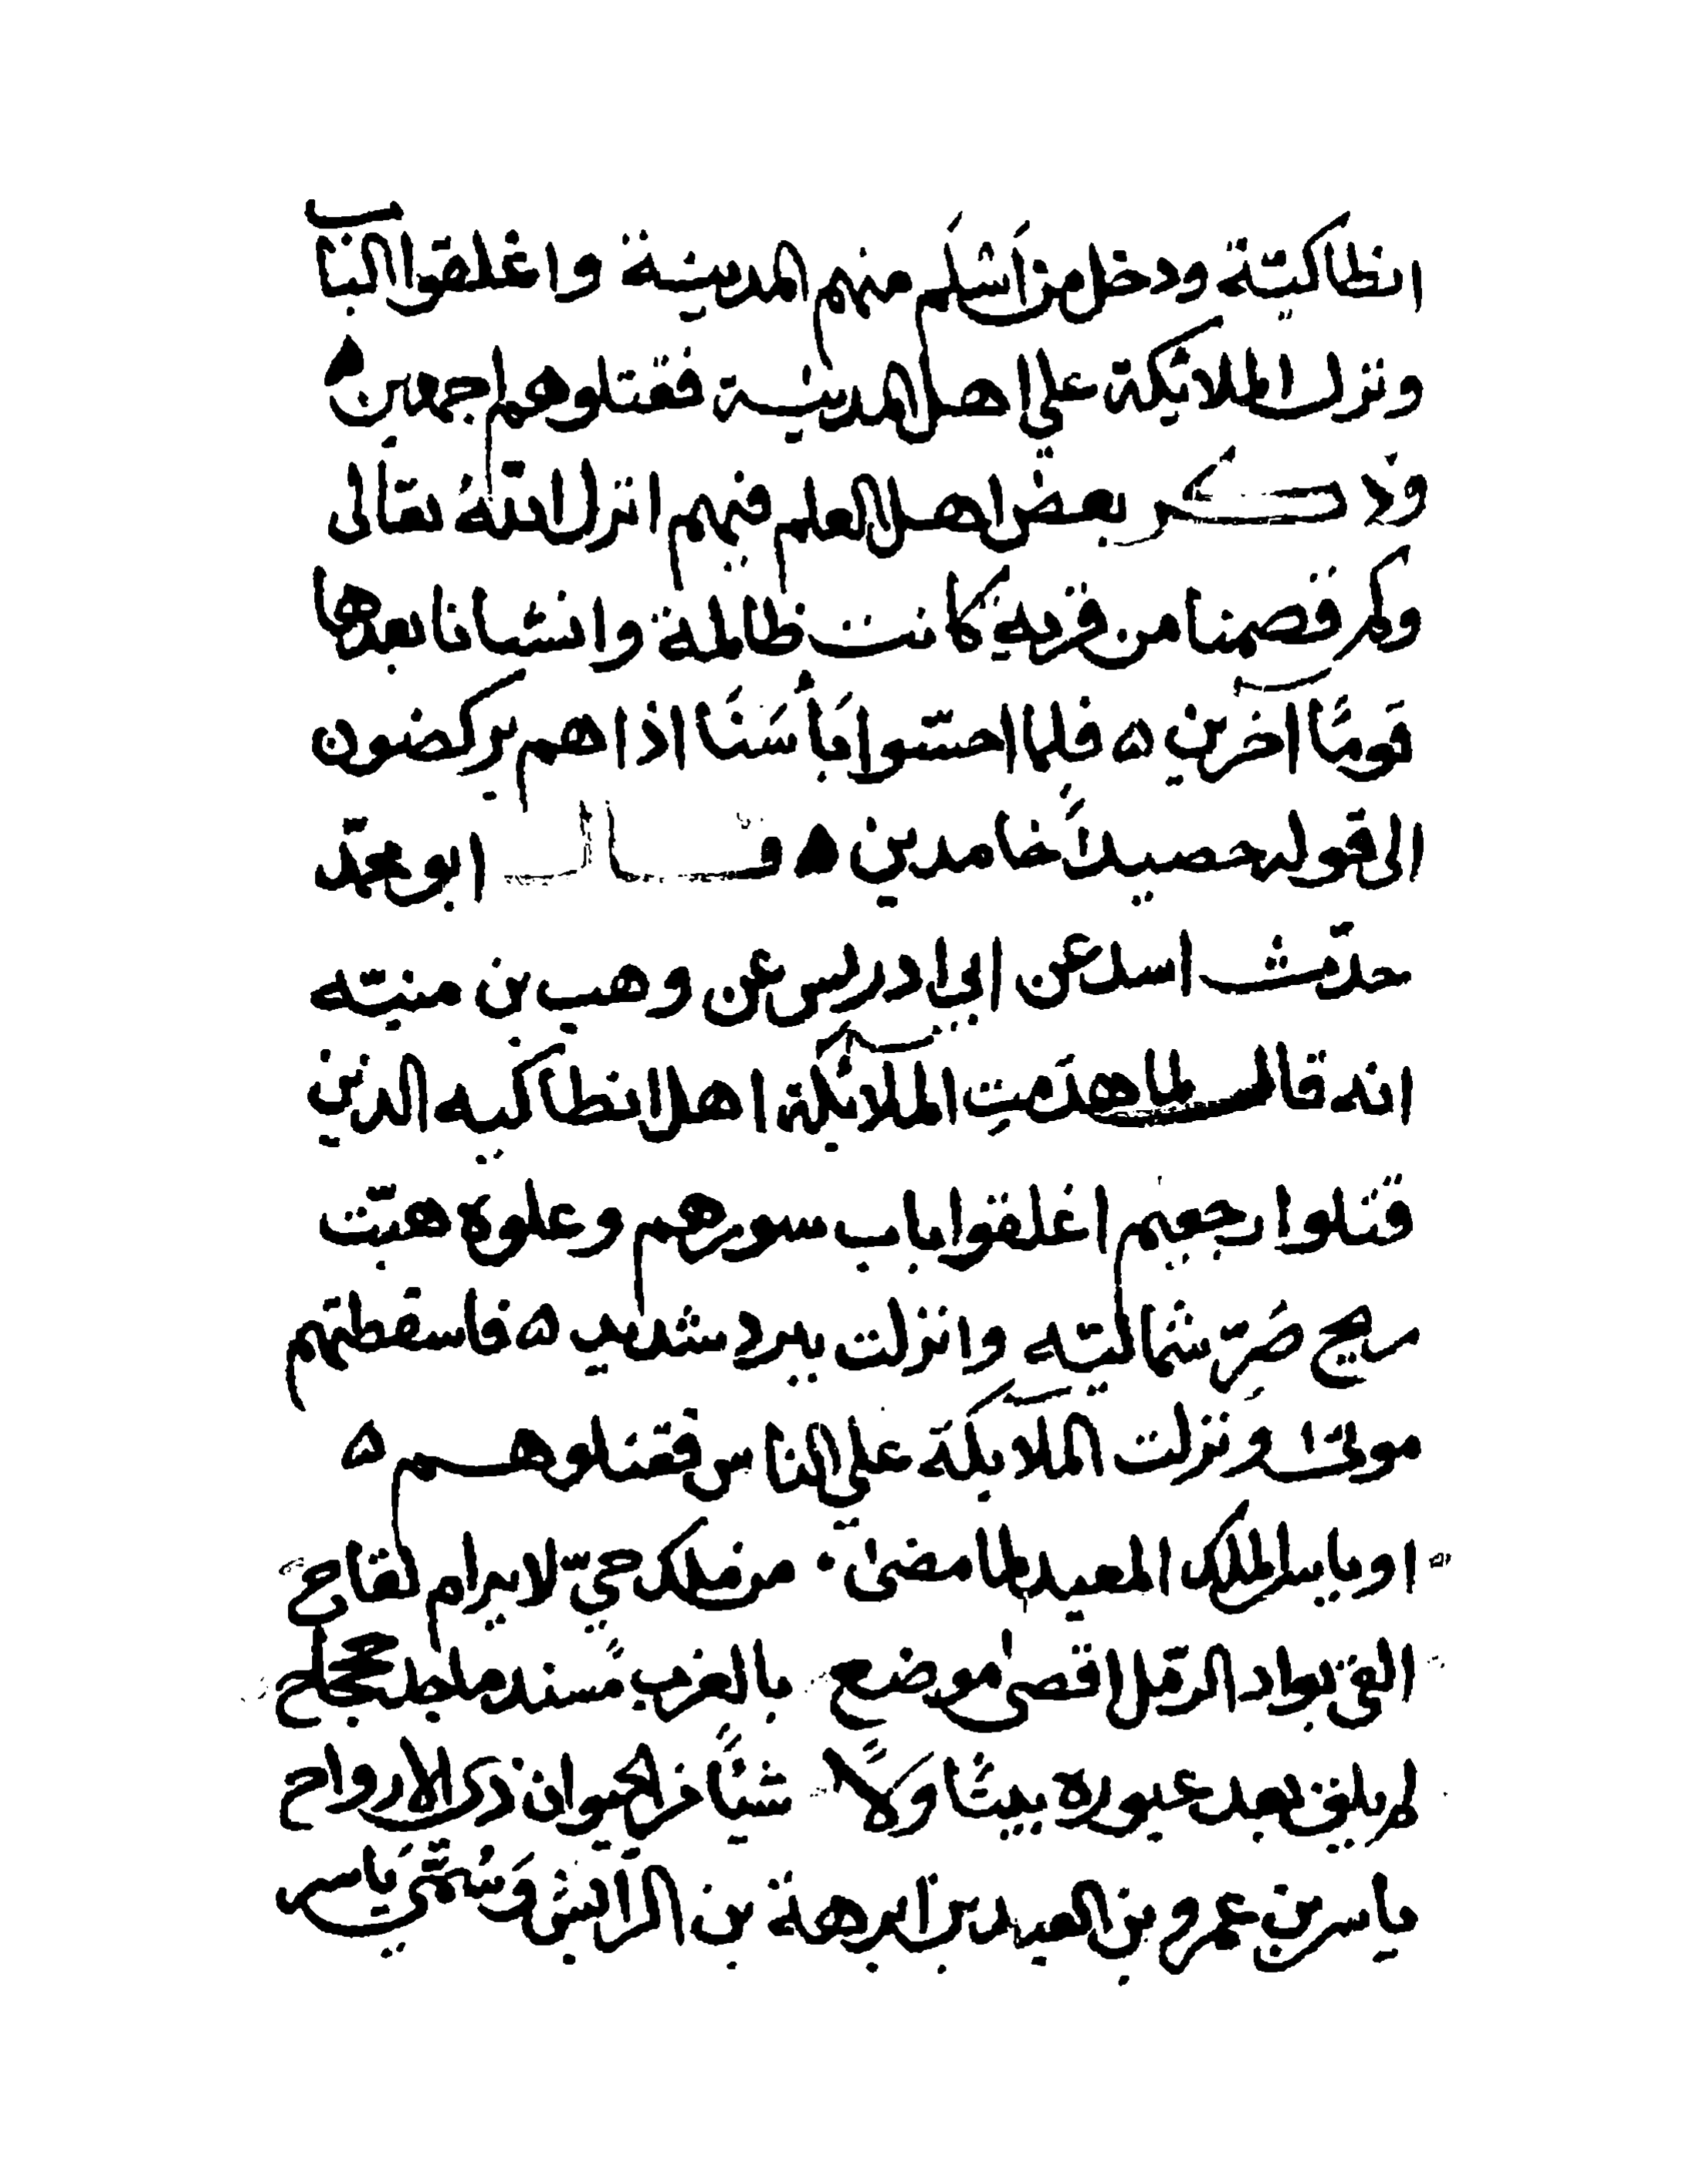 انطاكيّة ودخل من اَسْلَم منهم المدينة واغلقوا الباب
ونزل الملائكة على اهل المدينة فقتلوهم اجمعين
وذكر بعض اهل العلم فيهم انزل الله تعالى
وكم قصمنا من قرية كانت ظالمة وانشانا بعدها
قَومًا آخرين ه فلما احسّوا بَأسَنَا اذا هم يركضون
الى قوله حصيداً خامدين ه قال ابو محمّد
حدّث اسد عن ابي ادريس عن وهب بن منبّه
انه قال لما هدَمت الملائكة اهل انطاكيه الذين
قتلوا رجعيم اغلقوا باب سورهم وعلوه هبّت
ريح صَرّ شماليّه وانزلت ببرد شديد ه فاسقطتهم
موتى ونزلت الملايكة على الناس فقتلوهم ه
او ياسر الملك المعيد لما مضى من ملك حيّ لا يرام لقاح
القى بواد الرمل اقصى موضع بالغرب مُسند ماجد جحجاح
لم يلق بعد عبوره بيتًا ولاً شيئًا من الحيوان ذى الارواح
ياسر بن عمرو بن العبد بن ابرهة بن الرايش وَسُمّي يَاسر